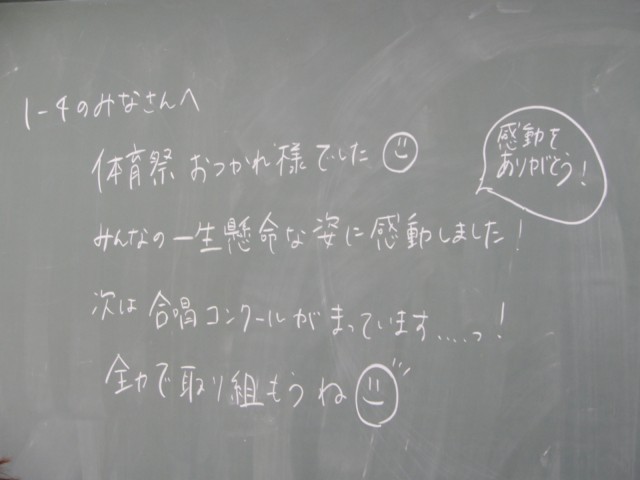 1-4のみなさんへ
体育祭おつかれ様でした
感動を
ありがとう!
みんなの一生懸命な姿に感動しました!
次は合唱コンクールがまっています....っ!
全力で取り組もうね